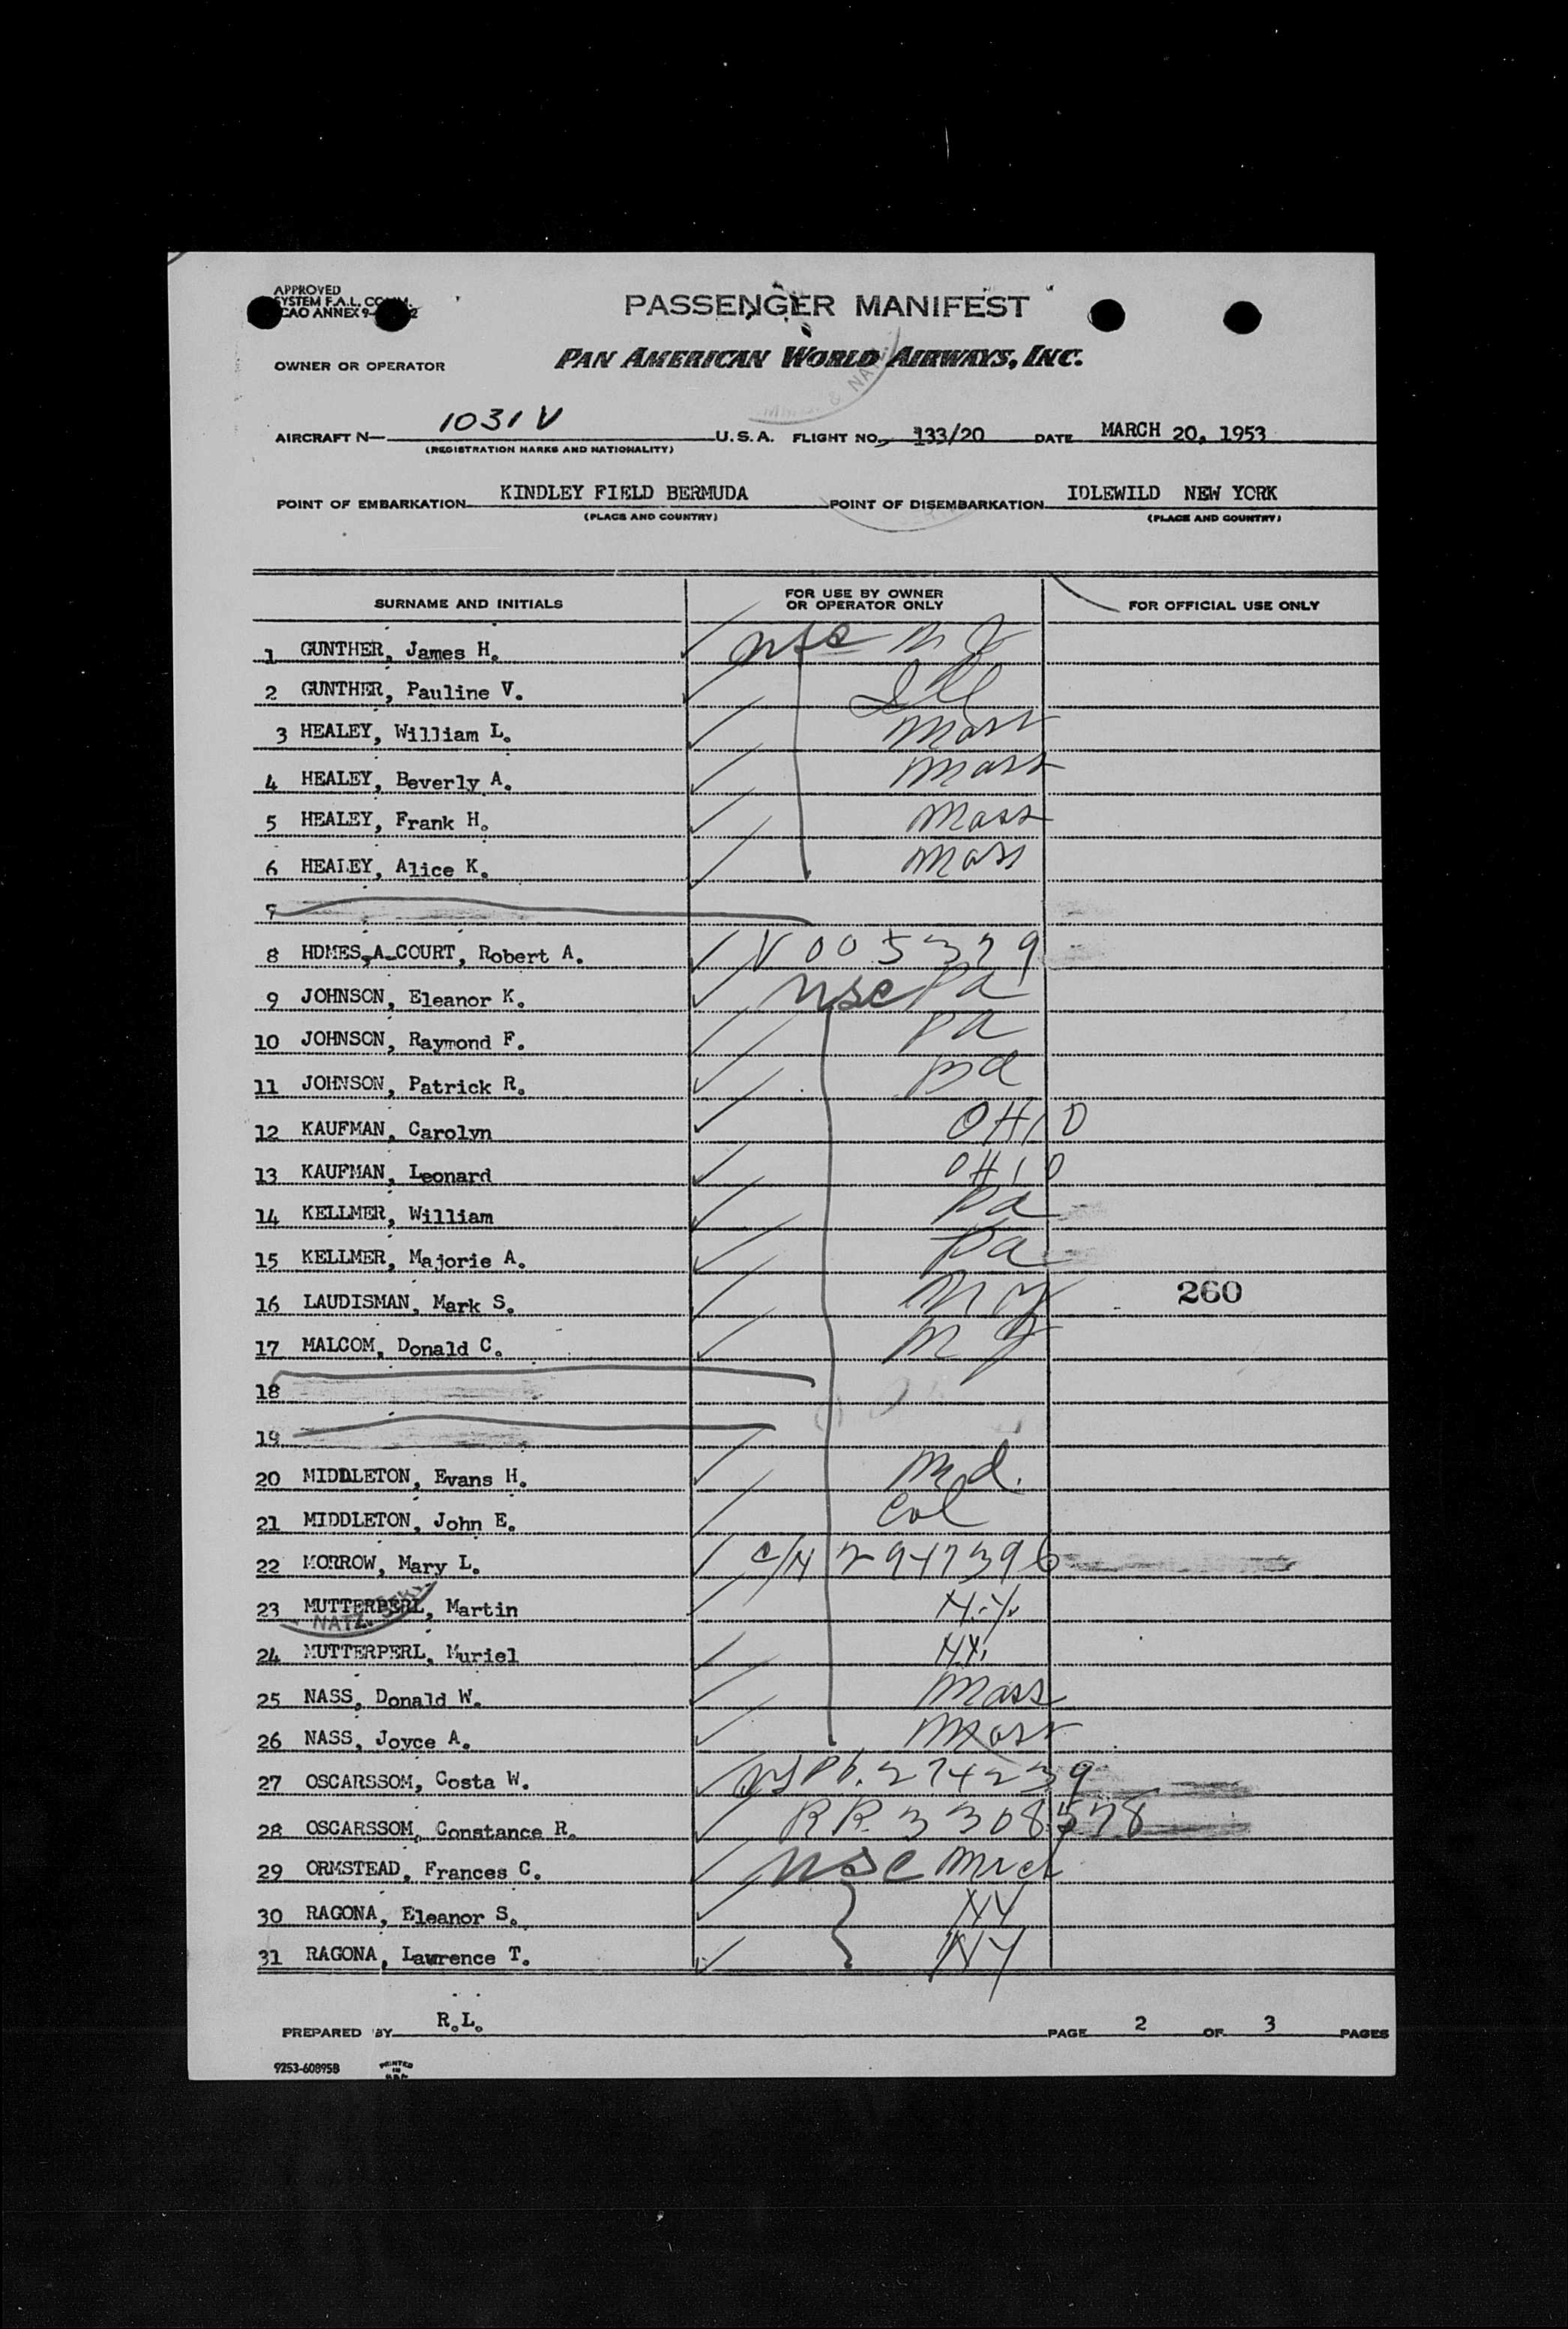 APPROVED
SYSTEM F.A.L. COMM.
ICAO ANNEX 9-
PASSENGER MANIFEST
OWNER OR OPERATOR PAN AMERICAN WORLD AIRWAYS, INC.
AIRCRAFT N— 1031V U.S.A. FLIGHT NO. 133/20 DATE MARCH 20, 1953
(REGISTRATION MARKS AND NATIONALITY)
POINT OF EMBARKATION KINDLEY FIELD BERMUDA POINT OF DISEMBARKATION IDLEWILD NEW YORK
(PLACE AND COUNTRY) (PLACE AND COUNTRY)
SURNAME AND INITIALS FOR USE BY OWNER OR OPERATOR ONLY FOR OFFICIAL USE ONLY
1 GUNTHER, James H. NJ
2 GUNTHER, Pauline V. Ill
3 HEALEY, William L. Mass
4 HEALEY, Beverly A. Mass
5 HEALEY, Frank H. Mass
6 HEALEY, Alice K. Mass
8 HDMES,A-COURT, Robert A. V005379
9 JOHNSON, Eleanor K. usc Pa
10 JOHNSON, Raymond F. Pa
11 JOHNSON, Patrick R. Pa
12 KAUFMAN, Carolyn OHIO
13 KAUFMAN, Leonard OHIO
14 KELLMER, William Pa
15 KELLMER, Majorie A. Pa
16 LAUDISMAN, Mark S. NY 260
17 MALCOM, Donald C. NJ
18
19
20 MIDDLETON, Evans H. Md.
21 MIDDLETON, John E. Col
22 MORROW, Mary L. C/N 2947396
23 MUTTERPERL, Martin N.Y.
NATZ. SERV
24 MUTTERPERL, Muriel N.Y.
25 NASS, Donald W. Mass
26 NASS, Joyce A. Mass
27 OSCARSSOM, Costa W. 274239
28 OSCARSSOM, Constance R. RP. 3308578
29 ORMSTEAD, Frances C. usc Mich
30 RAGONA, Eleanor S. NY
31 RAGONA, Lawrence T. NY
PREPARED BY R.L. PAGE 2 OF 3 PAGES
9253-60895B PRINTED IN U.S.A.